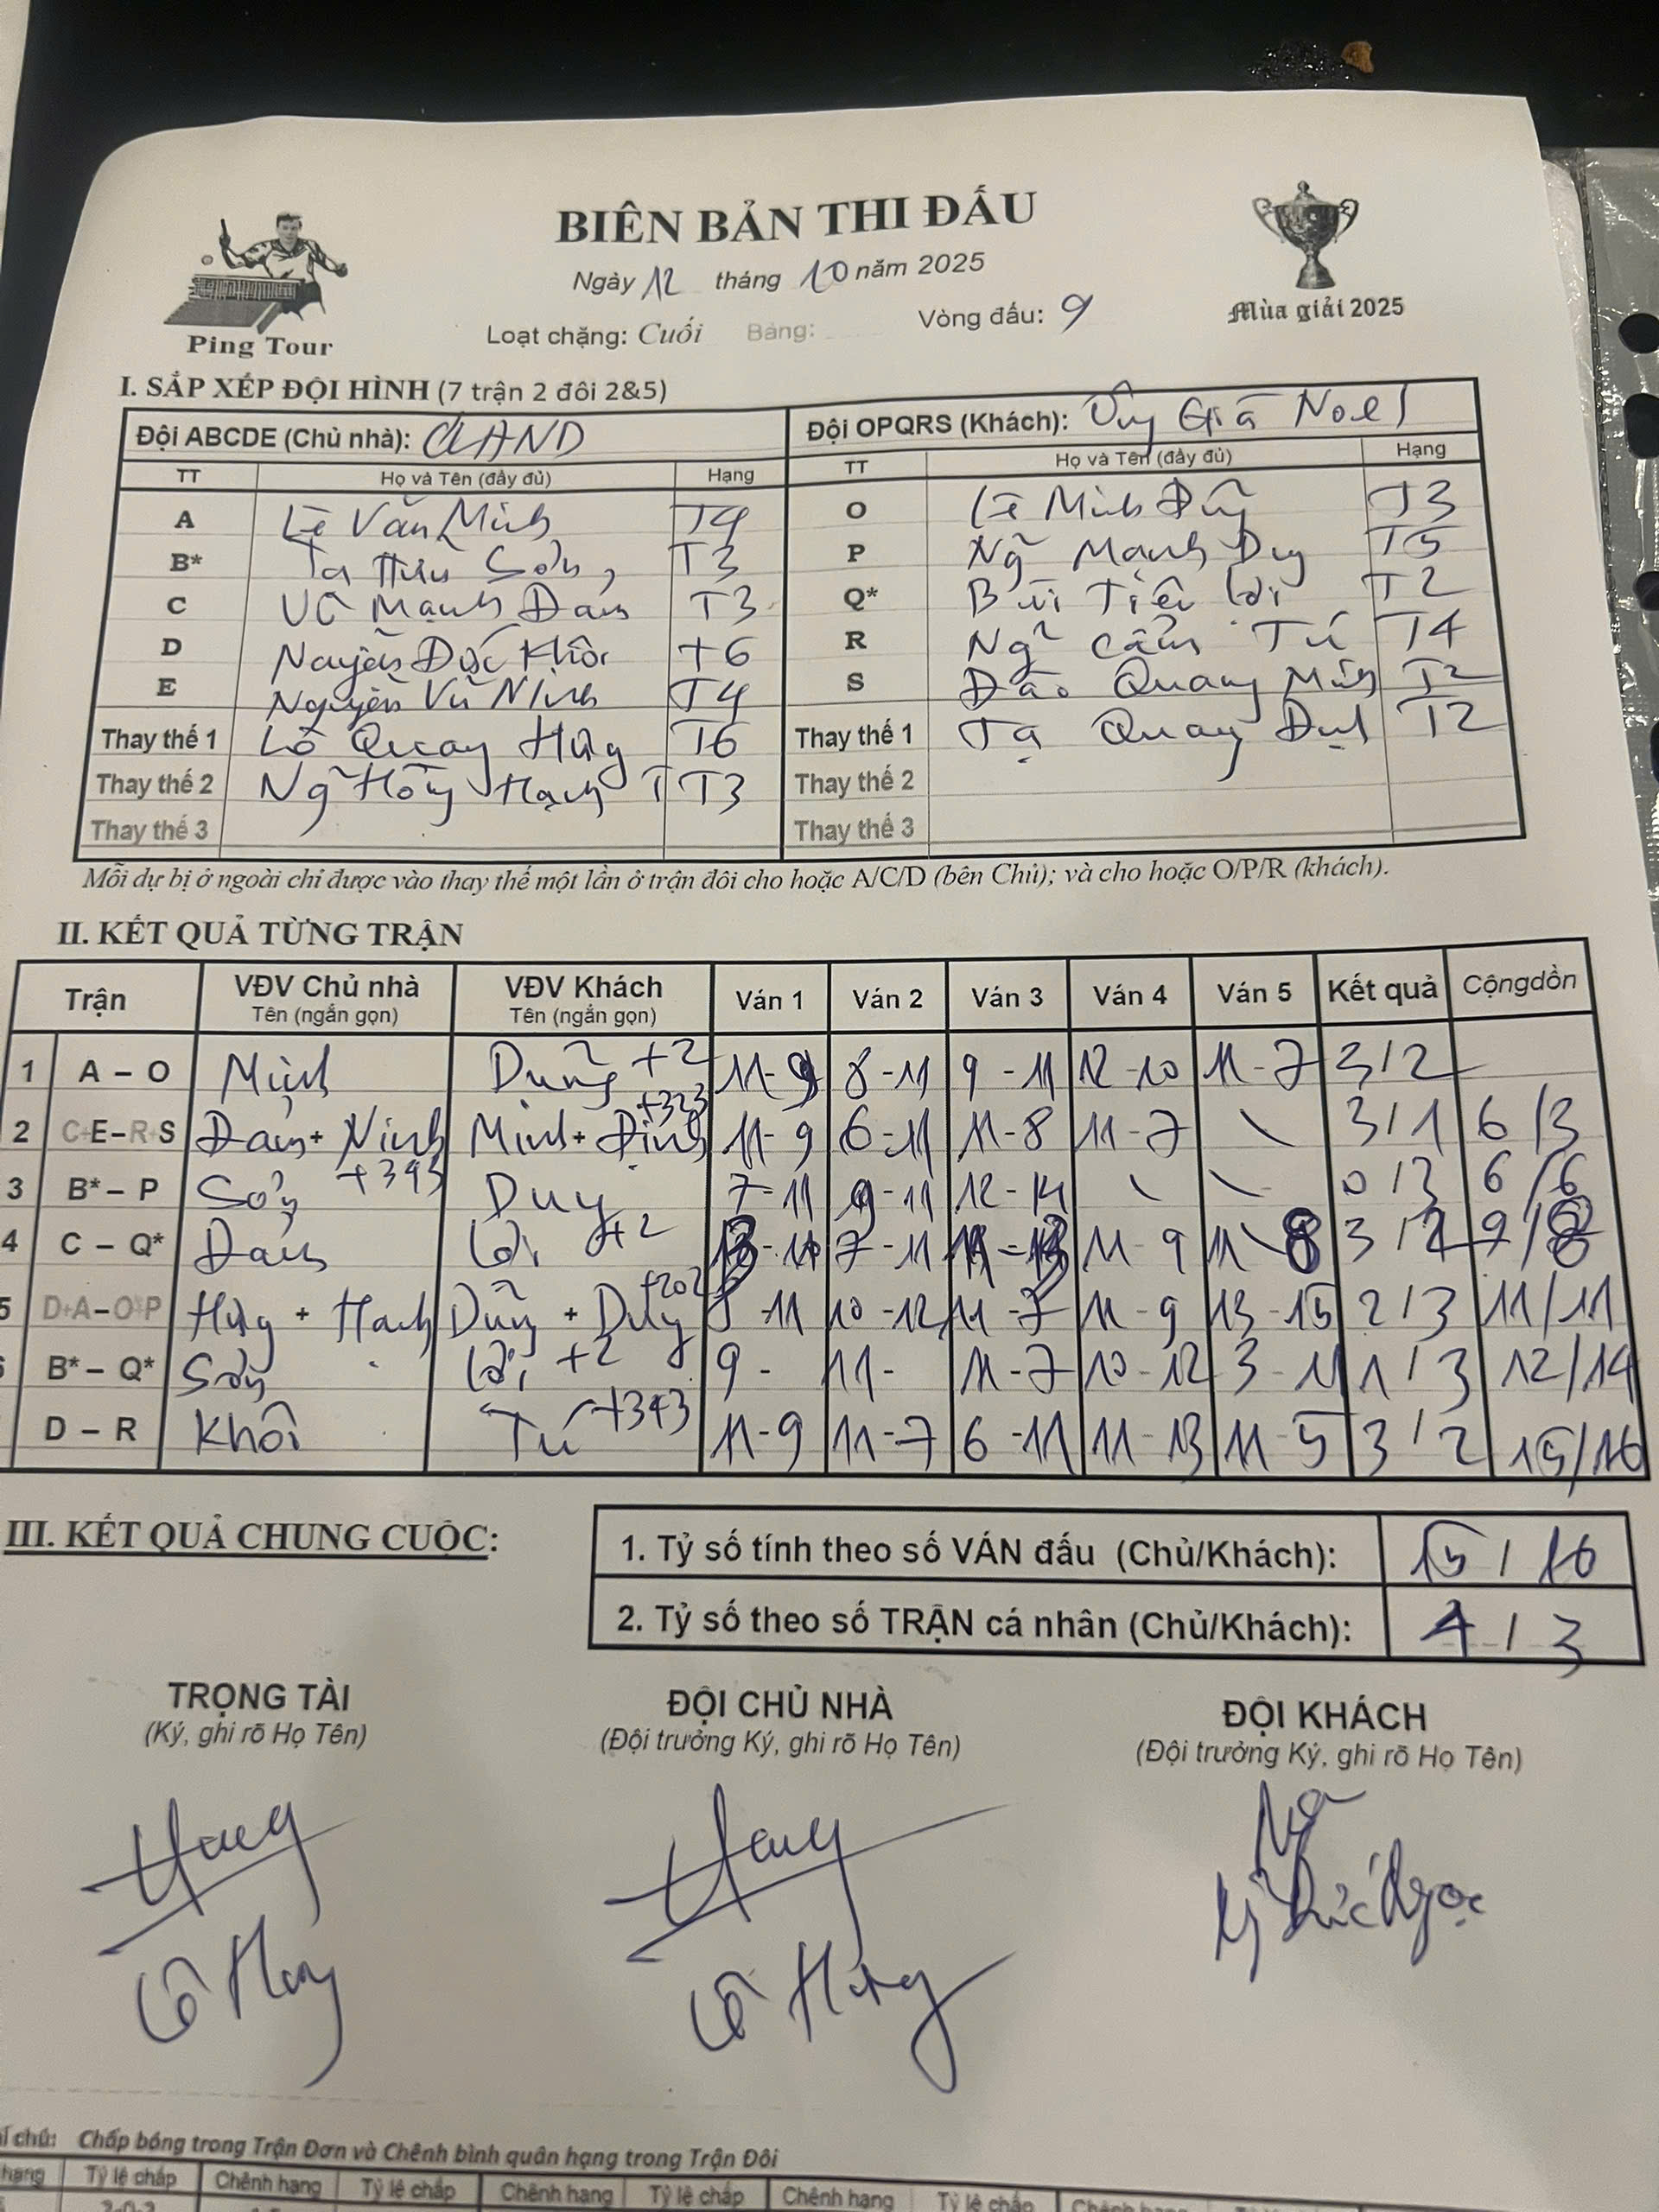 BIÊN BẢN THI ĐẤU
Ngày 12 tháng 10 năm 2025
Loạt chặng: Cuối Bảng: Vòng đấu: 9
Ping Tour
Mùa giải 2025
I. SẮP XẾP ĐỘI HÌNH (7 trận 2 đôi 2&5)
Đội ABCDE (Chủ nhà): CLAND Đội OPQRS (Khách): Ông Già Noel
TT Họ và Tên (đầy đủ) Hạng TT Họ và Tên (đầy đủ) Hạng
A Lê Văn Minh T4 O Lê Minh Dũng T3
B* Tạ Hữu Sơn T3 P Ng Mạnh Duy T5
C Võ Mạnh Đán T3 Q* Bùi Tiến Lợi T2
D Nguyễn Đức Khôi T6 R Ng Cẩm Tú T4
E Nguyễn Vũ Ninh T4 S Đào Quang Minh T2
Thay thế 1 Lô Quang Hưng T6 Thay thế 1 Tạ Quang Định T2
Thay thế 2 Ng Hồng Hạnh T T3 Thay thế 2
Thay thế 3 Thay thế 3
Mỗi dự bị ở ngoài chỉ được vào thay thế một lần ở trận đôi cho hoặc A/C/D (bên Chủ); và cho hoặc O/P/R (khách).
II. KẾT QUẢ TỪNG TRẬN
Trận VĐV Chủ nhà VĐV Khách Ván 1 Ván 2 Ván 3 Ván 4 Ván 5 Kết quả Cộngdồn
Tên (ngắn gọn) Tên (ngắn gọn)
1 A – O Minh Dũng +2 11-9 8-11 9-11 12-10 11-7 3/2
2 C+E–R+S Đán + Ninh Minh + Định +323 11-9 6-11 11-8 11-7 \ 3/1 6/3
3 B* – P Sơn +343 Duy 7-11 9-11 12-14 \ \ 0/3 6/6
4 C – Q* Đán Lợi +2 7-11 11-9 11-8 3/2 9/8
5 D+A–O+P Hưng + Hạnh Dũng + Duy +202 -11 10-12 11-7 11-9 13-15 2/3 11/11
B* – Q* Sơn Lợi +2 9- 11- 11-7 10-12 3-11 1/3 12/14
D – R Khôi Tú +343 11-9 11-7 6-11 11-13 11-5 3/2 15/16
III. KẾT QUẢ CHUNG CUỘC:
1. Tỷ số tính theo số VÁN đấu (Chủ/Khách): 15 / 16
2. Tỷ số theo số TRẬN cá nhân (Chủ/Khách): 4 / 3
TRỌNG TÀI ĐỘI CHỦ NHÀ ĐỘI KHÁCH
(Ký, ghi rõ Họ Tên) (Đội trưởng Ký, ghi rõ Họ Tên) (Đội trưởng Ký, ghi rõ Họ Tên)
chú: Chấp bóng trong Trận Đơn và Chênh bình quân hạng trong Trận Đôi
hạng Tỷ lệ chấp Chênh hạng Tỷ lệ chấp Chênh hạng Tỷ lệ chấp Chênh hạng Tỷ lệ chấp